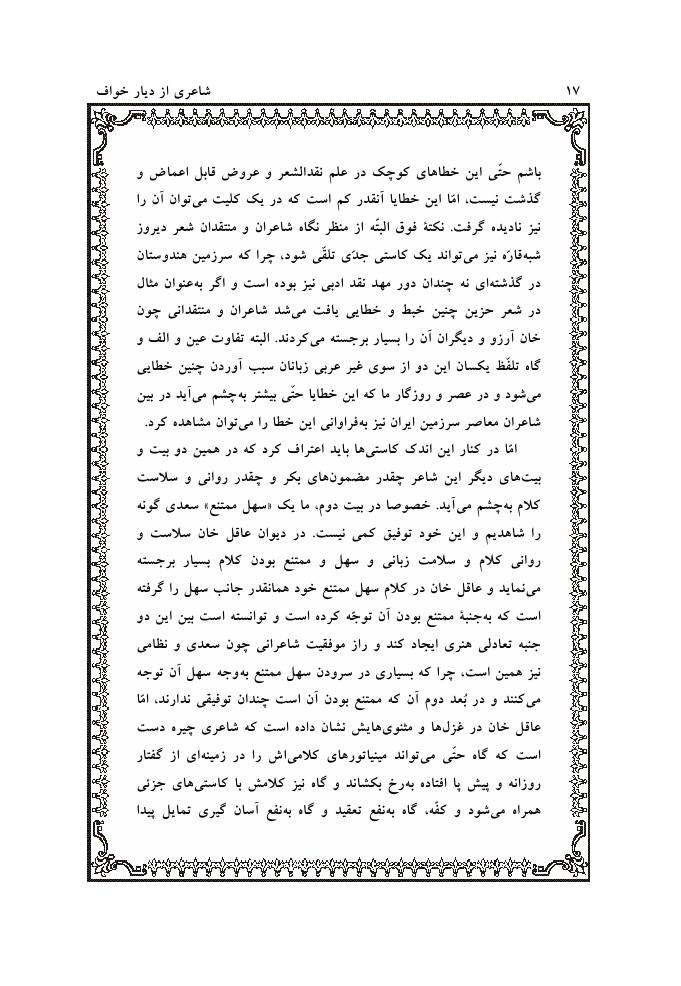 ۱۷
شاعری از دیار خواف
باشم حتّی این خطاهای کوچک در علم نقدالشعر و عروض قابل اعماض و
گذشت نیست، امّا این خطایا آنقدر کم است که در یک کلیت می‌توان آن را
نیز نادیده گرفت. نکتهٔ فوق البتّه از منظر نگاه شاعران و منتقدان شعر دیروز
شبه‌قارّه نیز می‌تواند یک کاستی جدّی تلقّی شود، چرا که سرزمین هندوستان
در گذشته‌ای نه چندان دور مهد نقد ادبی نیز بوده است و اگر به‌عنوان مثال
در شعر حزین چنین خبط و خطایی یافت می‌شد شاعران و منتقدانی چون
خان آرزو و دیگران آن را بسیار برجسته می‌کردند. البته تفاوت عین و الف و
گاه تلفّظ یکسان این دو از سوی غیر عربی زبانان سبب آوردن چنین خطایی
می‌شود و در عصر و روزگار ما که این خطایا حتّی بیشتر به‌چشم می‌آید در بین
شاعران معاصر سرزمین ایران نیز به‌فراوانی این خطا را می‌توان مشاهده کرد.
امّا در کنار این اندک کاستی‌ها باید اعتراف کرد که در همین دو بیت و
بیت‌های دیگر این شاعر چقدر مضمون‌های بکر و چقدر روانی و سلاست
کلام به‌چشم می‌آید. خصوصا در بیت دوم، ما یک «سهل ممتنع» سعدی گونه
را شاهدیم و این خود توفیق کمی نیست. در دیوان عاقل خان سلاست و
روانی کلام و سلامت زبانی و سهل و ممتنع بودن کلام بسیار برجسته
می‌نماید و عاقل خان در کلام سهل ممتنع خود همانقدر جانب سهل را گرفته
است که به‌جنبهٔ ممتنع بودن آن توجّه کرده است و توانسته است بین این دو
جنبه تعادلی هنری ایجاد کند و راز موفقیت شاعرانی چون سعدی و نظامی
نیز همین است، چرا که بسیاری در سرودن سهل ممتنع به‌وجه سهل آن توجه
می‌کنند و در بُعد دوم آن که ممتنع بودن آن است چندان توفیقی ندارند، امّا
عاقل خان در غزل‌ها و مثنوی‌هایش نشان داده است که شاعری چیره دست
است که گاه حتّی می‌تواند مینیاتورهای کلامی‌اش را در زمینه‌ای از گفتار
روزانه و پیش پا افتاده به‌رخ بکشاند و گاه نیز کلامش با کاستی‌های جزئی
همراه می‌شود و کفّه، گاه به‌نفع تعقید و گاه به‌نفع آسان گیری تمایل پیدا